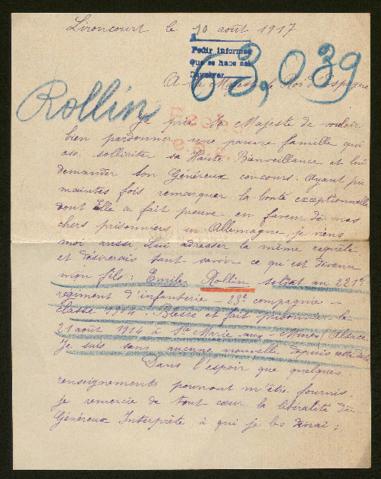 Lironcourt le 10 août 1917
Pedir informes
que se hace cas
63,039
A Sa Majesté le Roi d'Espagne
Rollin
Je prie Sa Majesté de vouloir
bien pardonner une pauvre famille qui
ose solliciter sa Haute Bienveillance et lui
demander son Généreux concours. Ayant pu
maintes fois remarquer la bonté exceptionnelle
dont Elle a fait preuve en faveur de nos
chers prisonniers en Allemagne, je viens
moi aussi Lui adresser la même requête
et désirerais tant savoir ce qu'est devenu
mon fils: Emile Rollin soldat au 221e
régiment d'infanterie - 23e compagnie -
classe 1904 - Blessé et fait prisonnier le
21 août 1914 à Ste Marie-aux-Mines (Alsace)
Je suis sans aucune nouvelle depuis cette date
Dans l'espoir que quelques
renseignements pourront m'être fournis,
je remercie de tout cœur la libéralité du
Généreux Interprète à qui je les devrai;